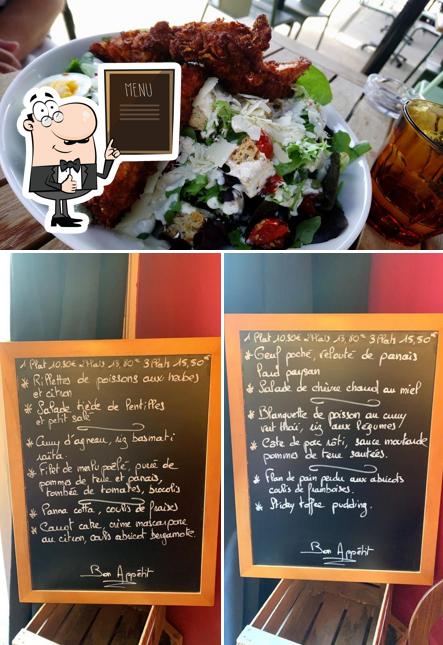 MENU
1 Plat 10,30€ 2 Plats 13,80€ 3 Plats 15,50€
* Rillettes de poissons aux herbes
et citron
* Salade tiède de lentilles
et petit salé
* Curry d'agneau, riz basmati
raita.
* Filet de merlu poêlé, purée de
pommes de terre et panais,
tombée de tomates, brocolis
* Panna cotta, coulis de fraises
* Carrot cake, crème mascarpone
au citron, coulis abricot bergamote.
Bon Appétit
1 Plat 10,30€ 2 Plats 13,80€ 3 Plats 15,50€
* Oeuf poché, velouté de panais
lard paysan
* Salade de chèvre chaud au miel
* Blanquette de poisson au curry
vert thaï, riz aux légumes
* Cote de porc rôti, sauce moutarde
pommes de terre sautées.
* Flan de pain perdu aux abricots
coulis de framboises.
* Sticky toffee pudding.
Bon Appétit